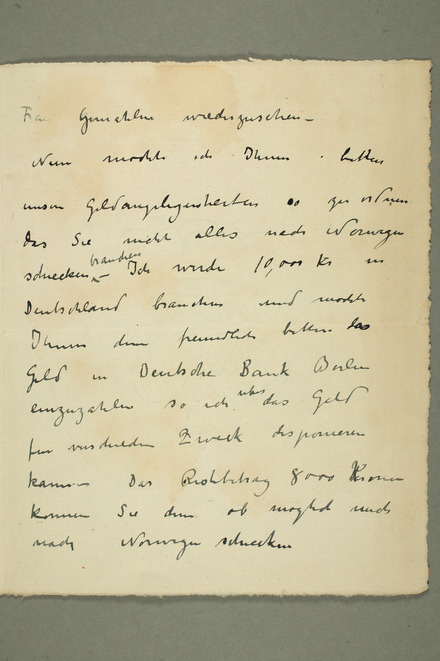 Frau Gemahlin wiederzusehen –
Nun mochte ich Ihnen bitten
unsere Geldangelegenheiten so zu ordnen
das Sie nicht alles nach Norwegen
schicken brauchen – Ich werde 10,000 Kr in
Deutschland brauchen und mochte
Ihnen dem freundlich bitten das
Geld in Deutsche Bank Berlin
einzuzahlen so ich uber das Geld
fur verschieden Zweck disponieren
kann – Das Restbetrag 8000 Kronen
konnen Sie dem ob moglich mich
nach Norwegen schicken